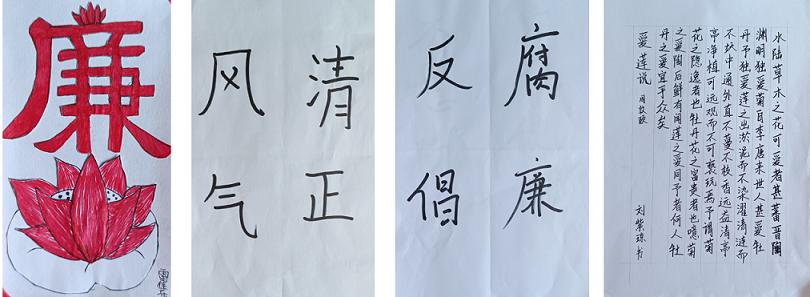 廉
风清
气正
反腐
倡廉
水陆草木之花可爱者甚蕃晋陶
渊明独爱菊自李唐来世人甚爱牡
丹予独爱莲之出淤泥而不染濯清涟而
不妖中通外直不蔓不枝香远益清亭
亭净植可远观而不可亵玩焉予谓菊
花之隐逸者也牡丹花之富贵者也噫菊
之爱陶后鲜有闻莲之爱同予者何人牡
丹之爱宜乎众矣
爱莲说 周敦颐
刘紫琼书